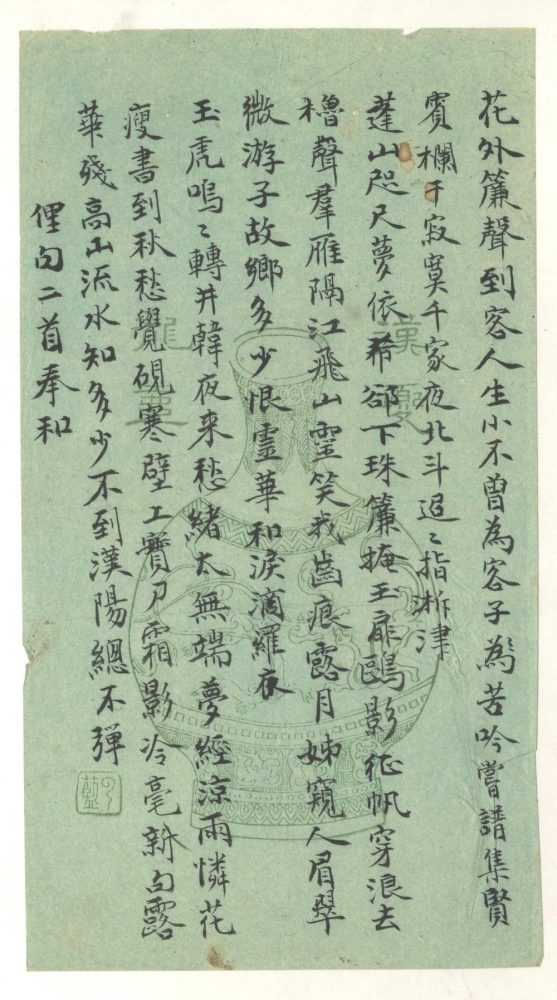 花外簾聲到客人生小不曾為客子為苦吟嘗譜集賢
賓欄干寂寞千家夜北斗迢〻指淅津
蓬山咫尺夢依希卻下珠簾掩玉扉鷗影征帆穿浪去
櫓聲羣雁隔江飛山靈笑我齒痕露月姊窺人眉翠
微游子故鄉多少恨靈華和淚滴羅衣
玉虎嗚〻轉井韓夜來愁緒太無端夢經涼雨憐花
瘦書到秋愁覺硯寒壁上寶刀霜影冷毫新句露
華殘高山流水知多少不到漢陽總不彈
俚句二首奉和
漢
龍